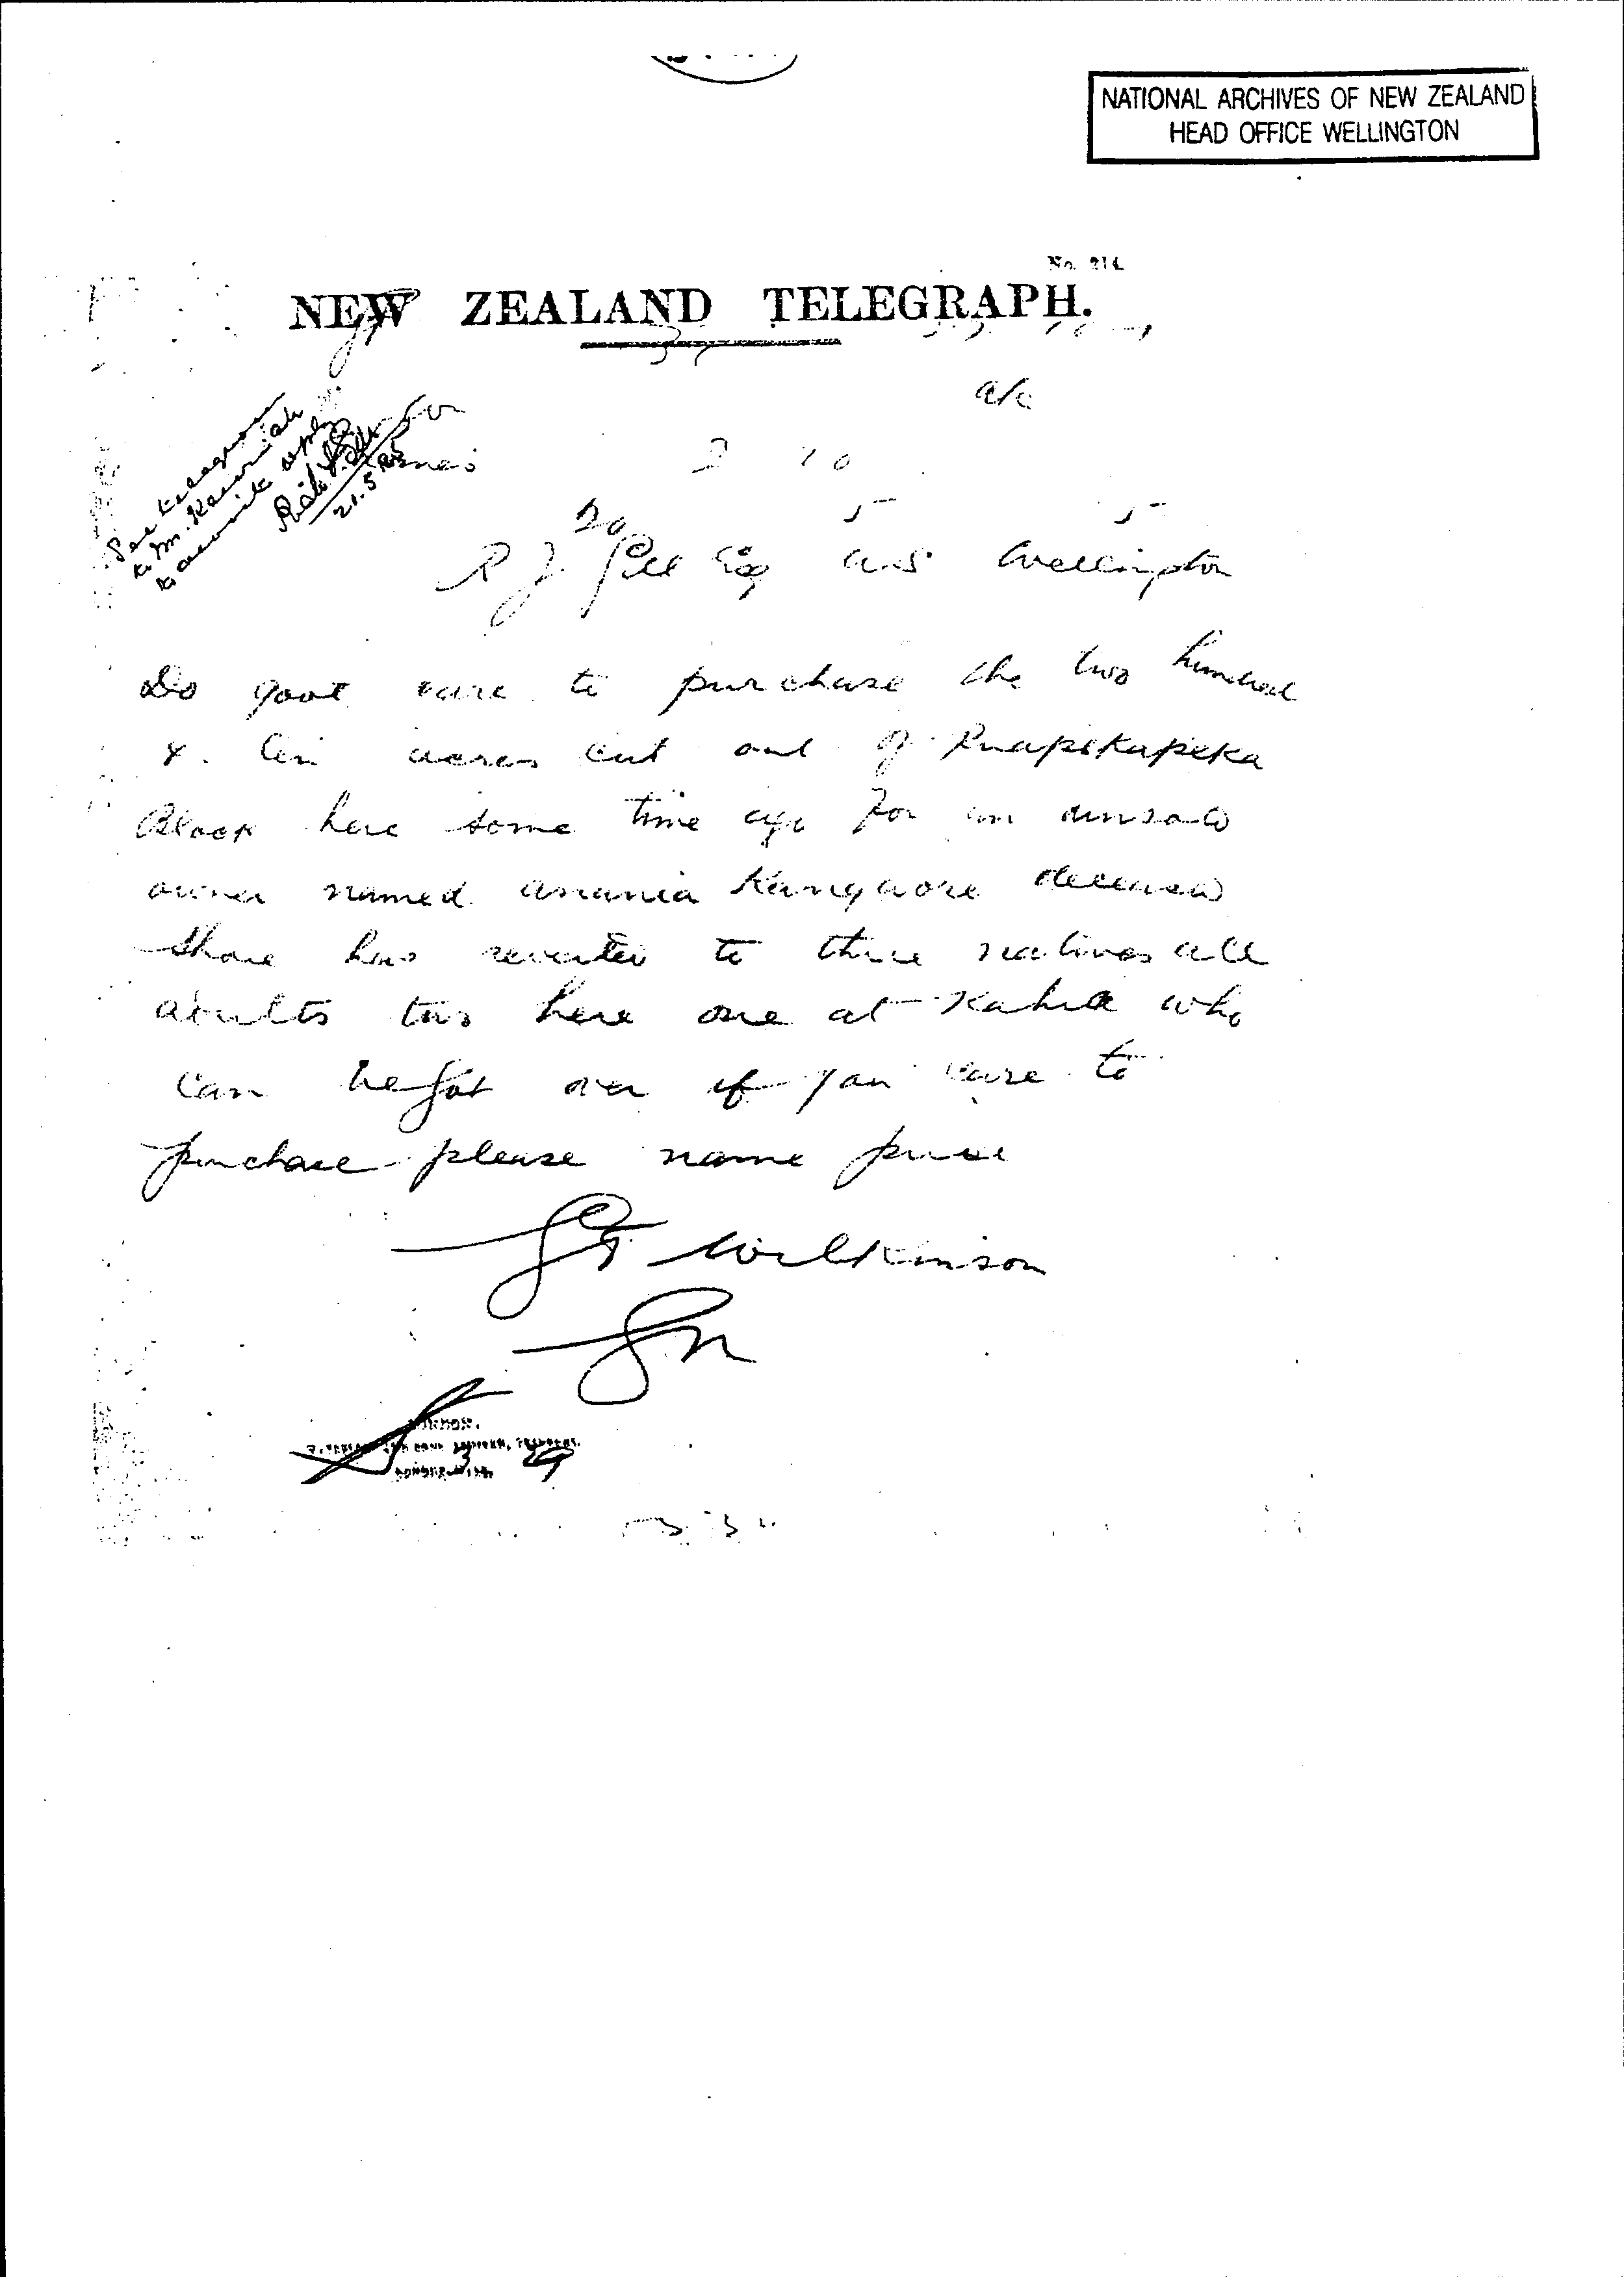 NATIONAL ARCHIVES OF NEW ZEALAND
HEAD OFFICE WELLINGTON
No. 214
NEW ZEALAND TELEGRAPH.
a/c
2 20
See telegram
to Mr.
to
21.5.85
20 5 5
R J Gill Esq Wellington
Do govt care to purchase the two hundred
& ten acres cut out of Ruapekapeka
Block here some time ago for an unsold
owner named anania Rangaore deceased
Share has reverted to three natives all
adults two here one at Kahia who
can be got over if you care to
purchase please name price
G T Wilkinson